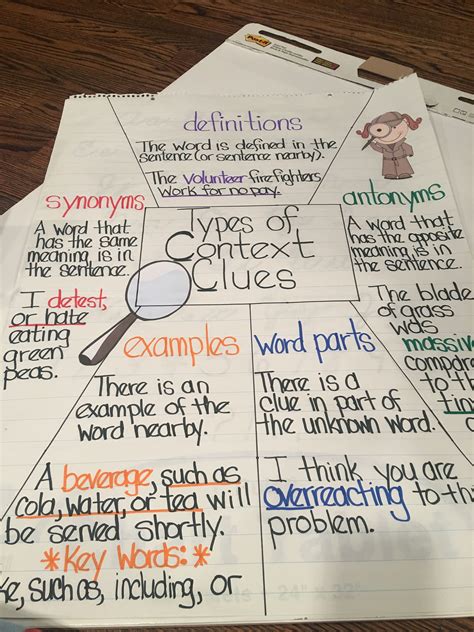 Post-it
definitions
The word is defined in the
sentence (or sentence nearby).
The volunteer firefighters
work for no pay.
synonyms
A word that
has the same
meaning is in
the sentence.
I detest,
or hate
eating
green
peas.
Types of
Context
Clues
antonyms
A word that
has the opposite
meaning is in
the sentence.
The blade
of grass
was
massive
to the
examples
There is an
example of the
word nearby.
A beverage, such as
cola, water, or tea will
be served shortly.
*Key Words:*
such as, including, or
word parts
There is a
clue in part of
the unknown word.
I think you are
overreacting to
problem.